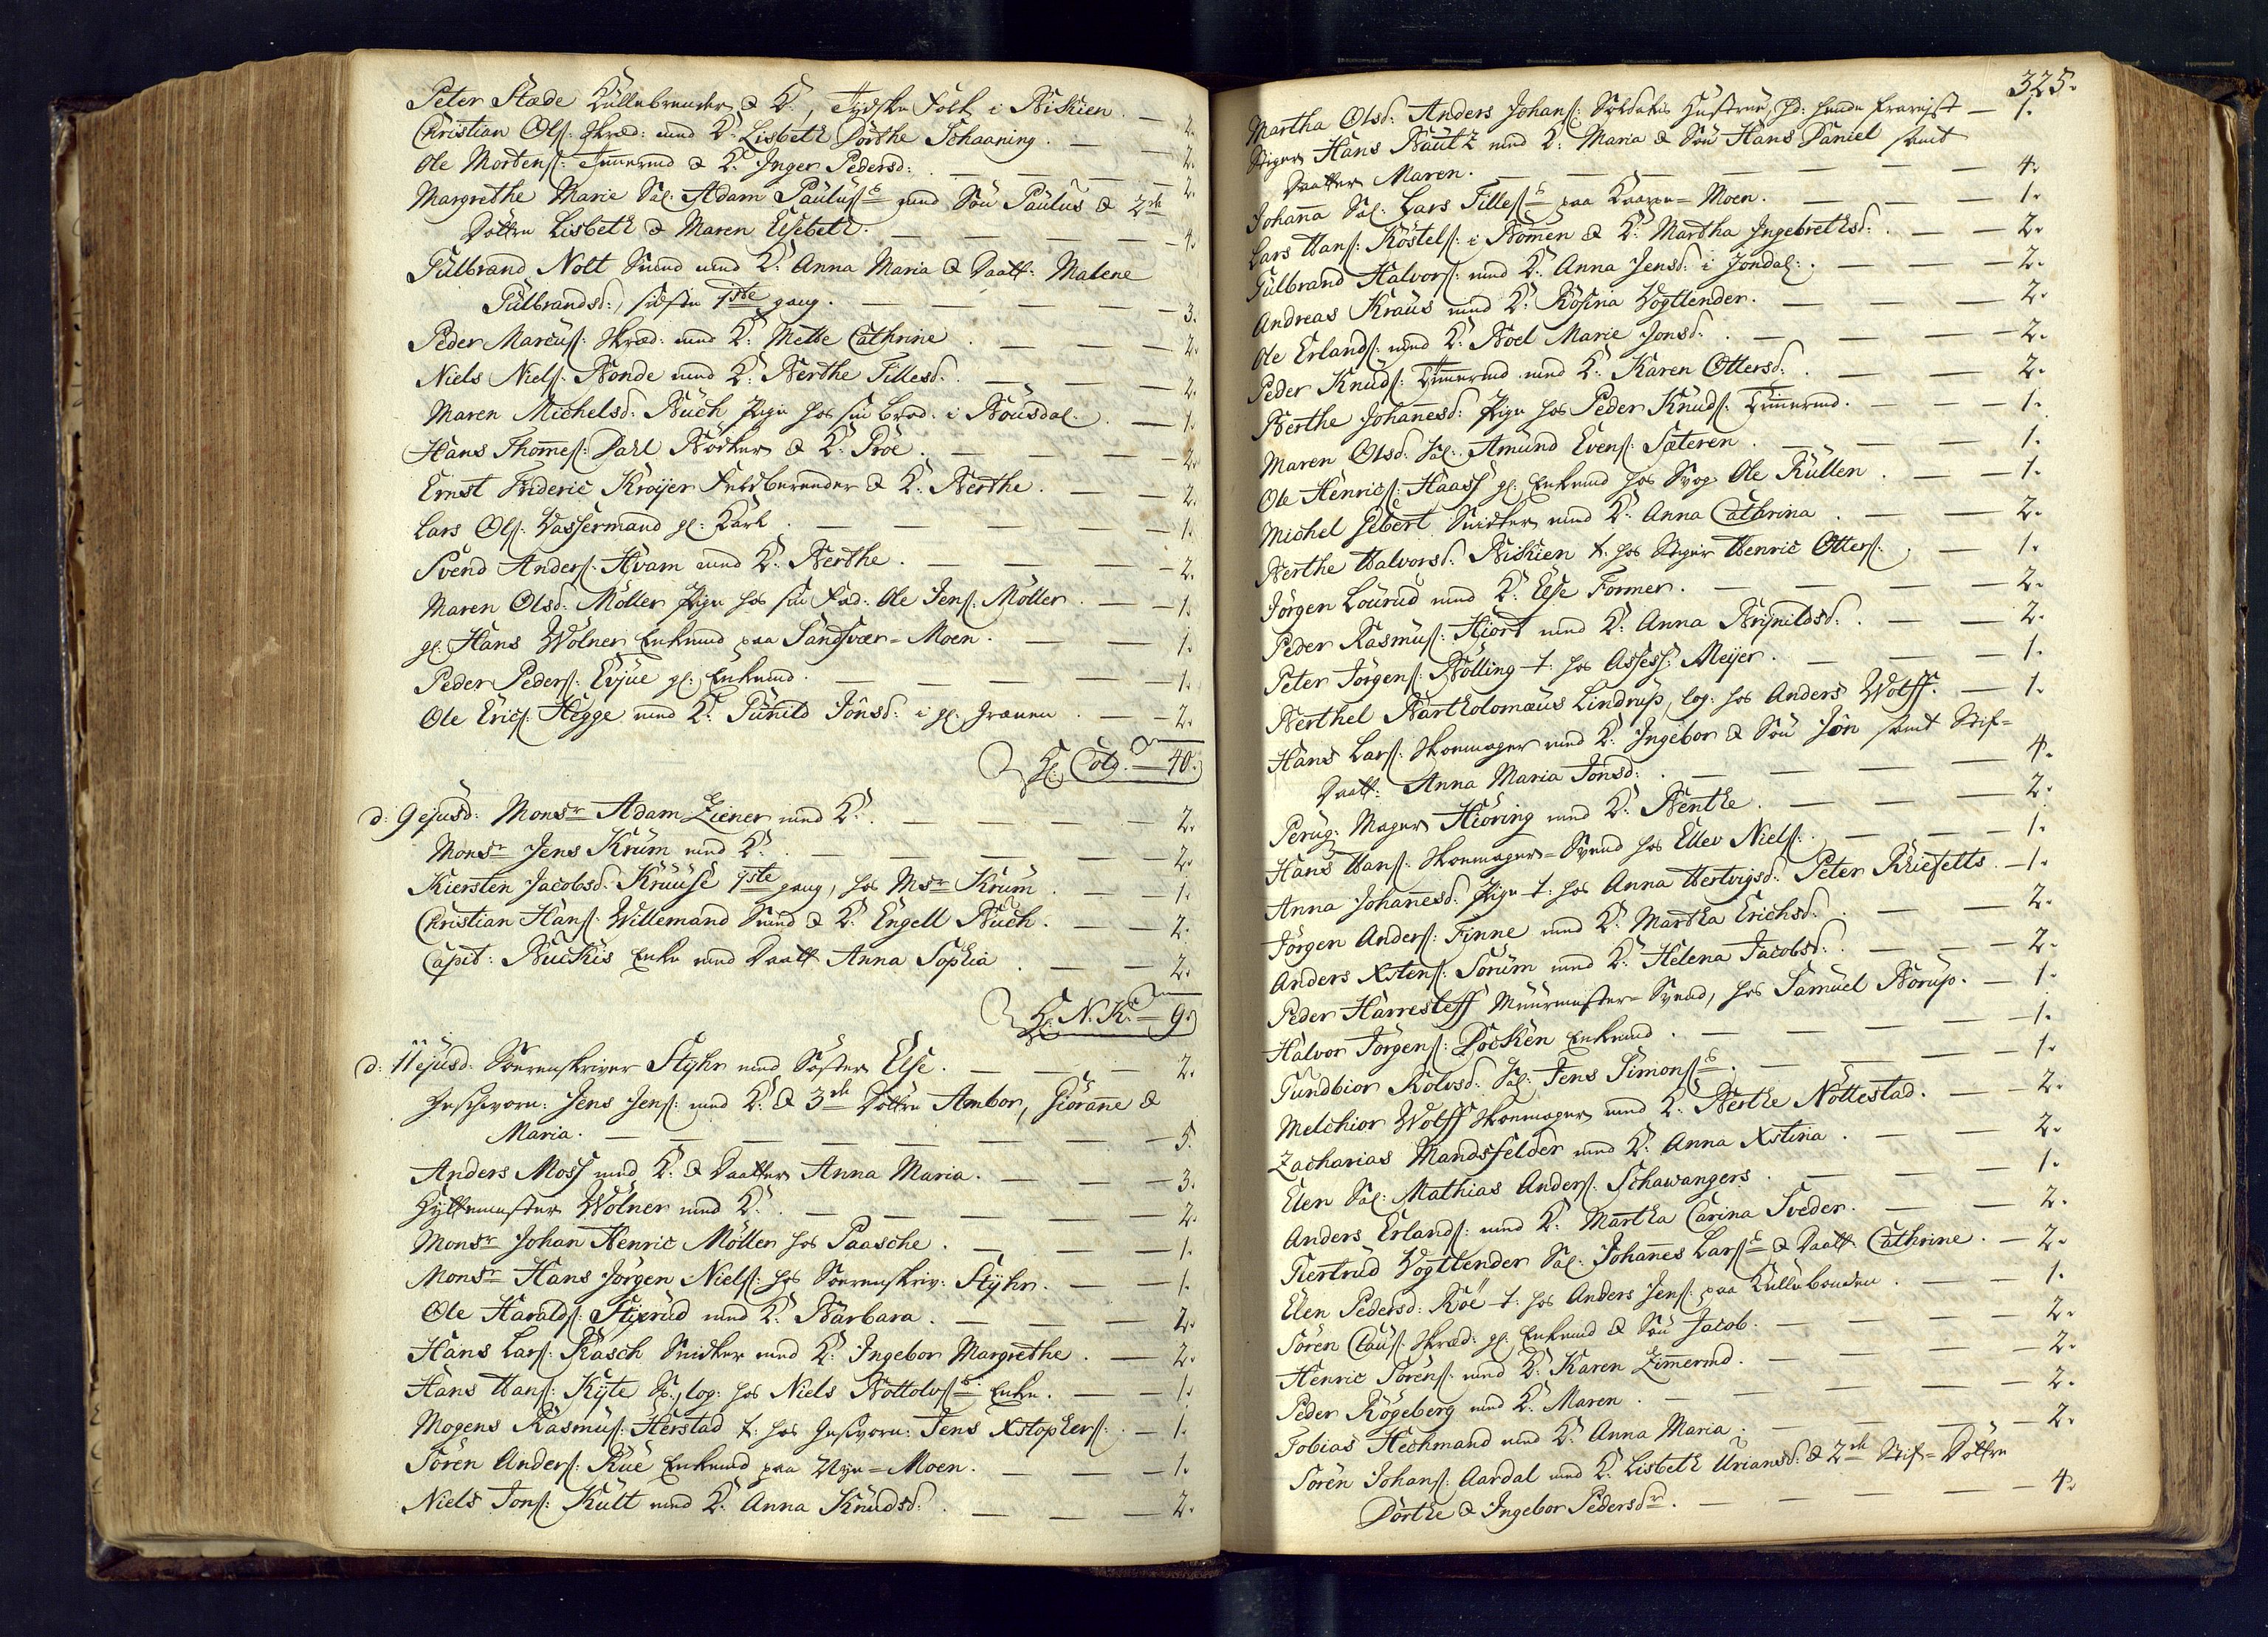 Peter Stæde Kullebrender & K:, Tydske Folk i Bikien. — 2.
Christian Ols: Skræd: med K: Lisbeth Dorthe Schaaning. — 2.
Ole Mortens: Tømermd & K: Inger Pedersd: — 2.
Margrethe Marie Sal: Adam Paulus: med Søn Paulus & 2de
Døttre Lisbeth & Maren Elsebeth. — 4.
Gulbrand Nolt Smed med K: Anna Maria & Daatt: Malene
Gulbrandsd: sidste 1ste gang. — 3.
Peder Marcus: Skræd: med K: Mette Cathrine. — 2.
Niels Niels: Bonde med K: Berthe Tillesd. — 2.
Maren Michelsd: Buch Pige hos sin Brod: i Bousdal. — 1.
Hans Thomes: Dahl Bødker & K: Proe. — 2.
Ernst Frideric Kroijer Feldberender & K: Berthe. — 2.
Lars Ols: Vassermand gl: Karl. — 1.
Svend Anders: Hvam med K: Berthe. — 2.
Maren Olsd: Möller Pige hos sin Fad: Ole Jens: Möller. — 1.
gl: Hans Wölner Enkemd paa Sandsvær-Moen. — 1.
Peder Peders: Evjue gl: Enkemd. — 1.
Ole Erics: Hegge med K: Gunild Jonsd: i gl: Grauen. — 2.
Hr: Colg. — 40.
d: 9 ejusd: Monsr Adam Ziener med K: — 2.
Monsr Jens Krum med K: — 2.
Kiersten Jacobsd: Kruuse 1ste gang, hos Msr Krum. — 1.
Christian Hans: Willemand Smed & K: Engell Buch. — 2.
Capit: Buckis Enke med Daatt Anna Sophia. — 2.
Hr: N.K: — 9.
d: 11 ejusd: Sorenskriver Styhr med Søster Else. — 2.
Geschworn: Jens Jens: med K: & 3de Døttre Ambor, Giørane &
Maria. — 5.
Anders Moss med K: & Daatter Anna Maria. — 3.
Hyttemester Wölner med K: — 2.
Monsr Johan Henric Möller hos Paasche. — 1.
Monsr Hans Jørgen Niels: hos Sorenskriv: Styhr. — 1.
Ole Haralds: Stixrud med K: Barbara. — 2.
Hans Lars: Rasch Snidker med K: Ingebor Margrethe. — 2.
Hans Hans: Kyte S:, log: hos Niels Bottolvs: Enke. — 1.
Mogens Rasmus: Herstad t: hos Geschvorn: Jens Xstophers: — 1.
Søren Anders: Rue Enkemd paa Nye-Moen. — 1.
Niels Jons: Kult med K: Anna Knudsd: — 2.
325.
Martha Olsd: Anders Johans: Soldats Hustrue — 1.
Stiger Hans Bautz med K: Maria & Søn Hans Daniel samt
Daatter Maren. — 4.
Johanna Sal: Lars Tilles: paa Moen. — 1.
Lars Hans: Köstels: i Bomen & K: Martha Ingebrethsd: — 2.
Gulbrand Halvors: med K: Anna Jensd: i Jondal: — 2.
Andreas Kraus med K: Rosina Vogtlender. — 2.
Ole Erlands: med K: Boel Marie Jonsd: — 2.
Peder Knuds: Tømermd med K: Karen Ottersd: — 2.
Berthe Johanesd: Pige hos Peder Knuds: Tømermd. — 1.
Maren Olsd: Sal: Amund Evens: Sæteren. — 1.
Ole Henrics: Haass gl: Enkemd hos Svog: Ole Rullen. — 1.
Michel Gebert Snidker med K: Anna Cathrina. — 2.
Berthe Halvorsd: Bikien t: hos Stiger Henric Otters: — 1.
Jørgen Lourud med K: Else Former. — 2.
Peder Rasmus: Hjort med K: Anna Brynildsd: — 2.
Peter Jørgens: Bölling t: hos Assess: Meijer. — 1.
Berthel Bartholomæus Lindrup, log: hos Anders Wolff. — 1.
Hans Lars: Skomager med K: Ingebor & Søn Jon samt Stif-
Daatt: Anna Maria Jonsd: — 4.
Perug: Mager Hiöring med K: Benthe. — 2.
Hans Hans: Skomager-Svend hos Ellev Niels: — 1.
Anna Johanesd: Pige t: hos Anna Hertvigsd: Peter Kriefelts. — 1.
Jørgen Anders: Finne med K: Martha Erichsd: — 2.
Anders Xstens: Sorum med K: Helena Jacobsd: — 2.
Peder Harresleff Muurmester-Svend, hos Samuel Borup. — 1.
Halvor Jørgens: Docken Enkemd. — 1.
Gundbior Rolvsd: Sal: Jens Simons: — 1.
Melchior Wolff Skomager med K: Berthe Nottestad. — 2.
Zacharias Mandsfelder med K: Anna Xstina. — 2.
Elen Sal: Mathias Anders: Schawangers. — 1.
Anders Erlands: med K: Martha Carina Sveder. — 2.
Giertrud Vogtlender Sal: Johannes Lars: & Daatt. Cathrine. — 2.
Elen Pedersd: Roe t: hos Anders Jens: paa Kullebonden. — 1.
Søren Claus: Skræd: gl: Enkemd & Søn Jacob. — 2.
Henric Sørens: med K: Karen Zimmermd. — 2.
Peder Rögeberg med K: Maren. — 2.
Tobias Heckmand med K: Anna Maria. — 2.
Søren Johans: Aardal med K: Lisbeth Uriansd: & 2de Stif-Døttre
Dorthe & Ingebor Pedersdr. — 4.